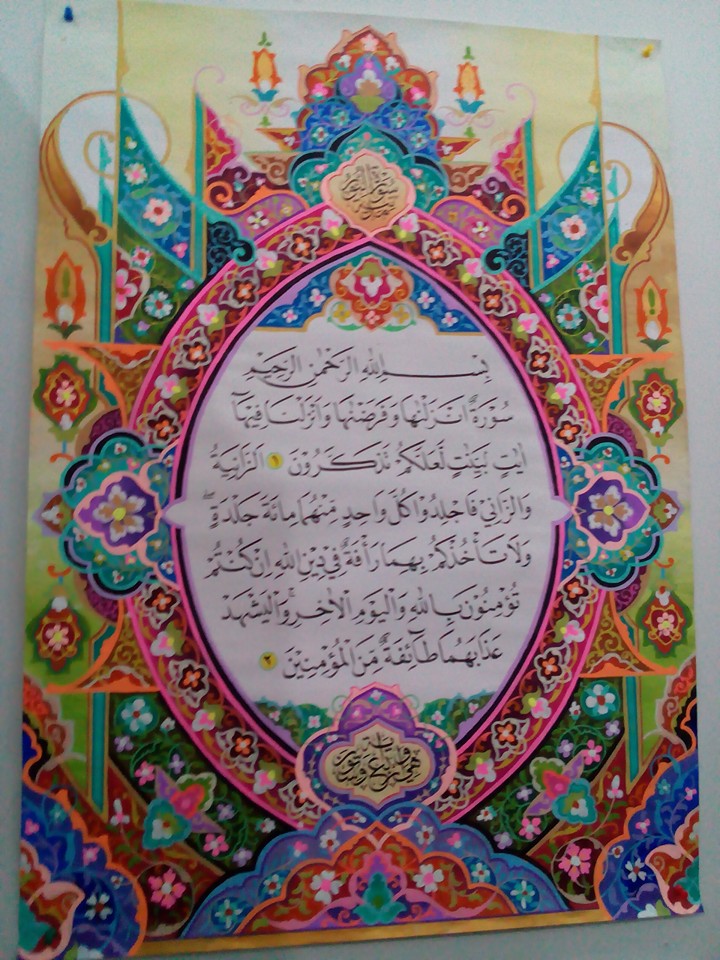 سورة النور
بسم الله الرحمن الرحيم
سُوْرَةٌ اَنْزَلْنٰهَا وَفَرَضْنٰهَا وَاَنْزَلْنَا فِيْهَآ
اٰيٰتٍۢ بَيِّنٰتٍ لَّعَلَّكُمْ تَذَكَّرُوْنَ ١ اَلزَّانِيَةُ
وَالزَّانِيْ فَاجْلِدُوْا كُلَّ وَاحِدٍ مِّنْهُمَا مِائَةَ جَلْدَةٍۖ
وَلَا تَأْخُذْكُمْ بِهِمَا رَأْفَةٌ فِيْ دِيْنِ اللهِ اِنْ كُنْتُمْ
تُؤْمِنُوْنَ بِاللهِ وَالْيَوْمِ الْاٰخِرِۚ وَالْيَشْهَدْ
عَذَابَهُمَا طَآئِفَةٌ مِّنَ الْمُؤْمِنِيْنَ ٢